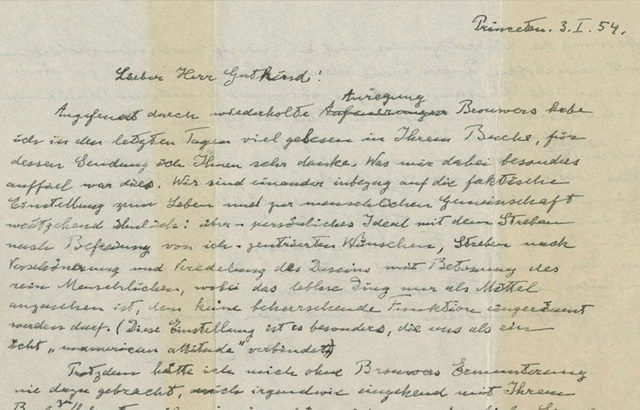 Princeton. 3. I. 54.
Lieber Herr Gutkind!
Angefeuert durch wiederholte Anregung Brouwers habe
ich in den letzten Tagen viel gelesen in Ihrem Buche, für
dessen Sendung ich Ihnen sehr danke. Was mir dabei besonders
auffiel war dies. Wir sind einander inbezug auf die faktische
Einstellung zum Leben und zur menschlichen Gemeinschaft
weitgehend ähnlich: über-persönliches Ideal mit dem Streben
nach Befreiung von ich-zentrierten Wünschen, Streben nach
Verschönerung und Veredelung des Daseins mit Betonung des
rein Menschlichen, wobei das leblose Ding nur als Mittel
anzusehen ist, dem keine beherrschende Funktion eingeräumt
werden darf. (Diese Einstellung ist es besonders, die uns als ein
ächt „unamerican attitude" verbindet)
Trotzdem hätte ich mich ohne Brouwers Ermunterung
nie dazu gebracht, mich irgendwie eingehend mit Ihrem